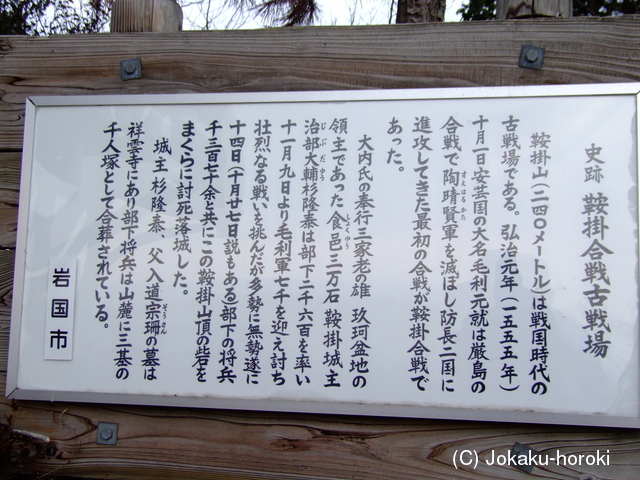 史跡 鞍掛合戦古戦場
鞍掛山(二四〇メートル)は戦国時代の
古戦場である。弘治元年(一五五五年)
十月一日安芸国の大名毛利元就は厳島の
合戦で陶晴賢軍を滅ぼし防長二国に
すえはるかた
進攻してきた最初の合戦が鞍掛合戦で
あった。
大内氏の奉行三家老の雄 玖珂盆地の
領主であった食邑三万石 鞍掛城主
しょくゆう
治部大輔杉隆泰は部下二千六百を率い
じぶだゆう
十一月九日より毛利軍七千を迎え討ち
壮烈なる戦いを挑んだが多勢に無勢遂に
十四日(十月廿七日説もある)部下の将兵
千三百七十余と共にこの鞍掛山頂の砦を
まくらに討死落城した。
城主杉隆泰、父入道宗珊の墓は
そうさん
祥雲寺にあり部下将兵は山麓に三基の
千人塚として合葬されている。
岩国市
(C) Jokaku-horoki